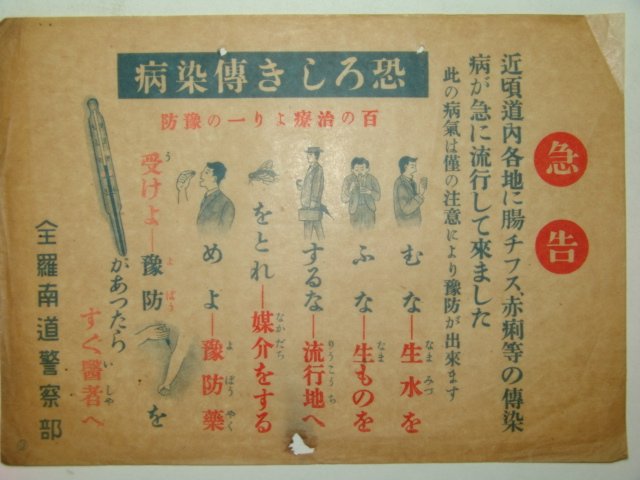 急告
近頃道内各地に腸チフス、赤痢等の傳染
病が急に流行して來ました
此の病氣は僅の注意により豫防が出來ます
恐ろしき傳染病
百の治療より一の豫防
むな―生水を
なまみづ
ふな―生ものを
なま
するな―流行地へ
りうこうち
をとれ―媒介をする
なかだち
めよ―豫防藥
よばうやく
受けよ―豫防を
う よばう
があつたら
すぐ醫者へ
いしや
全羅南道警察部